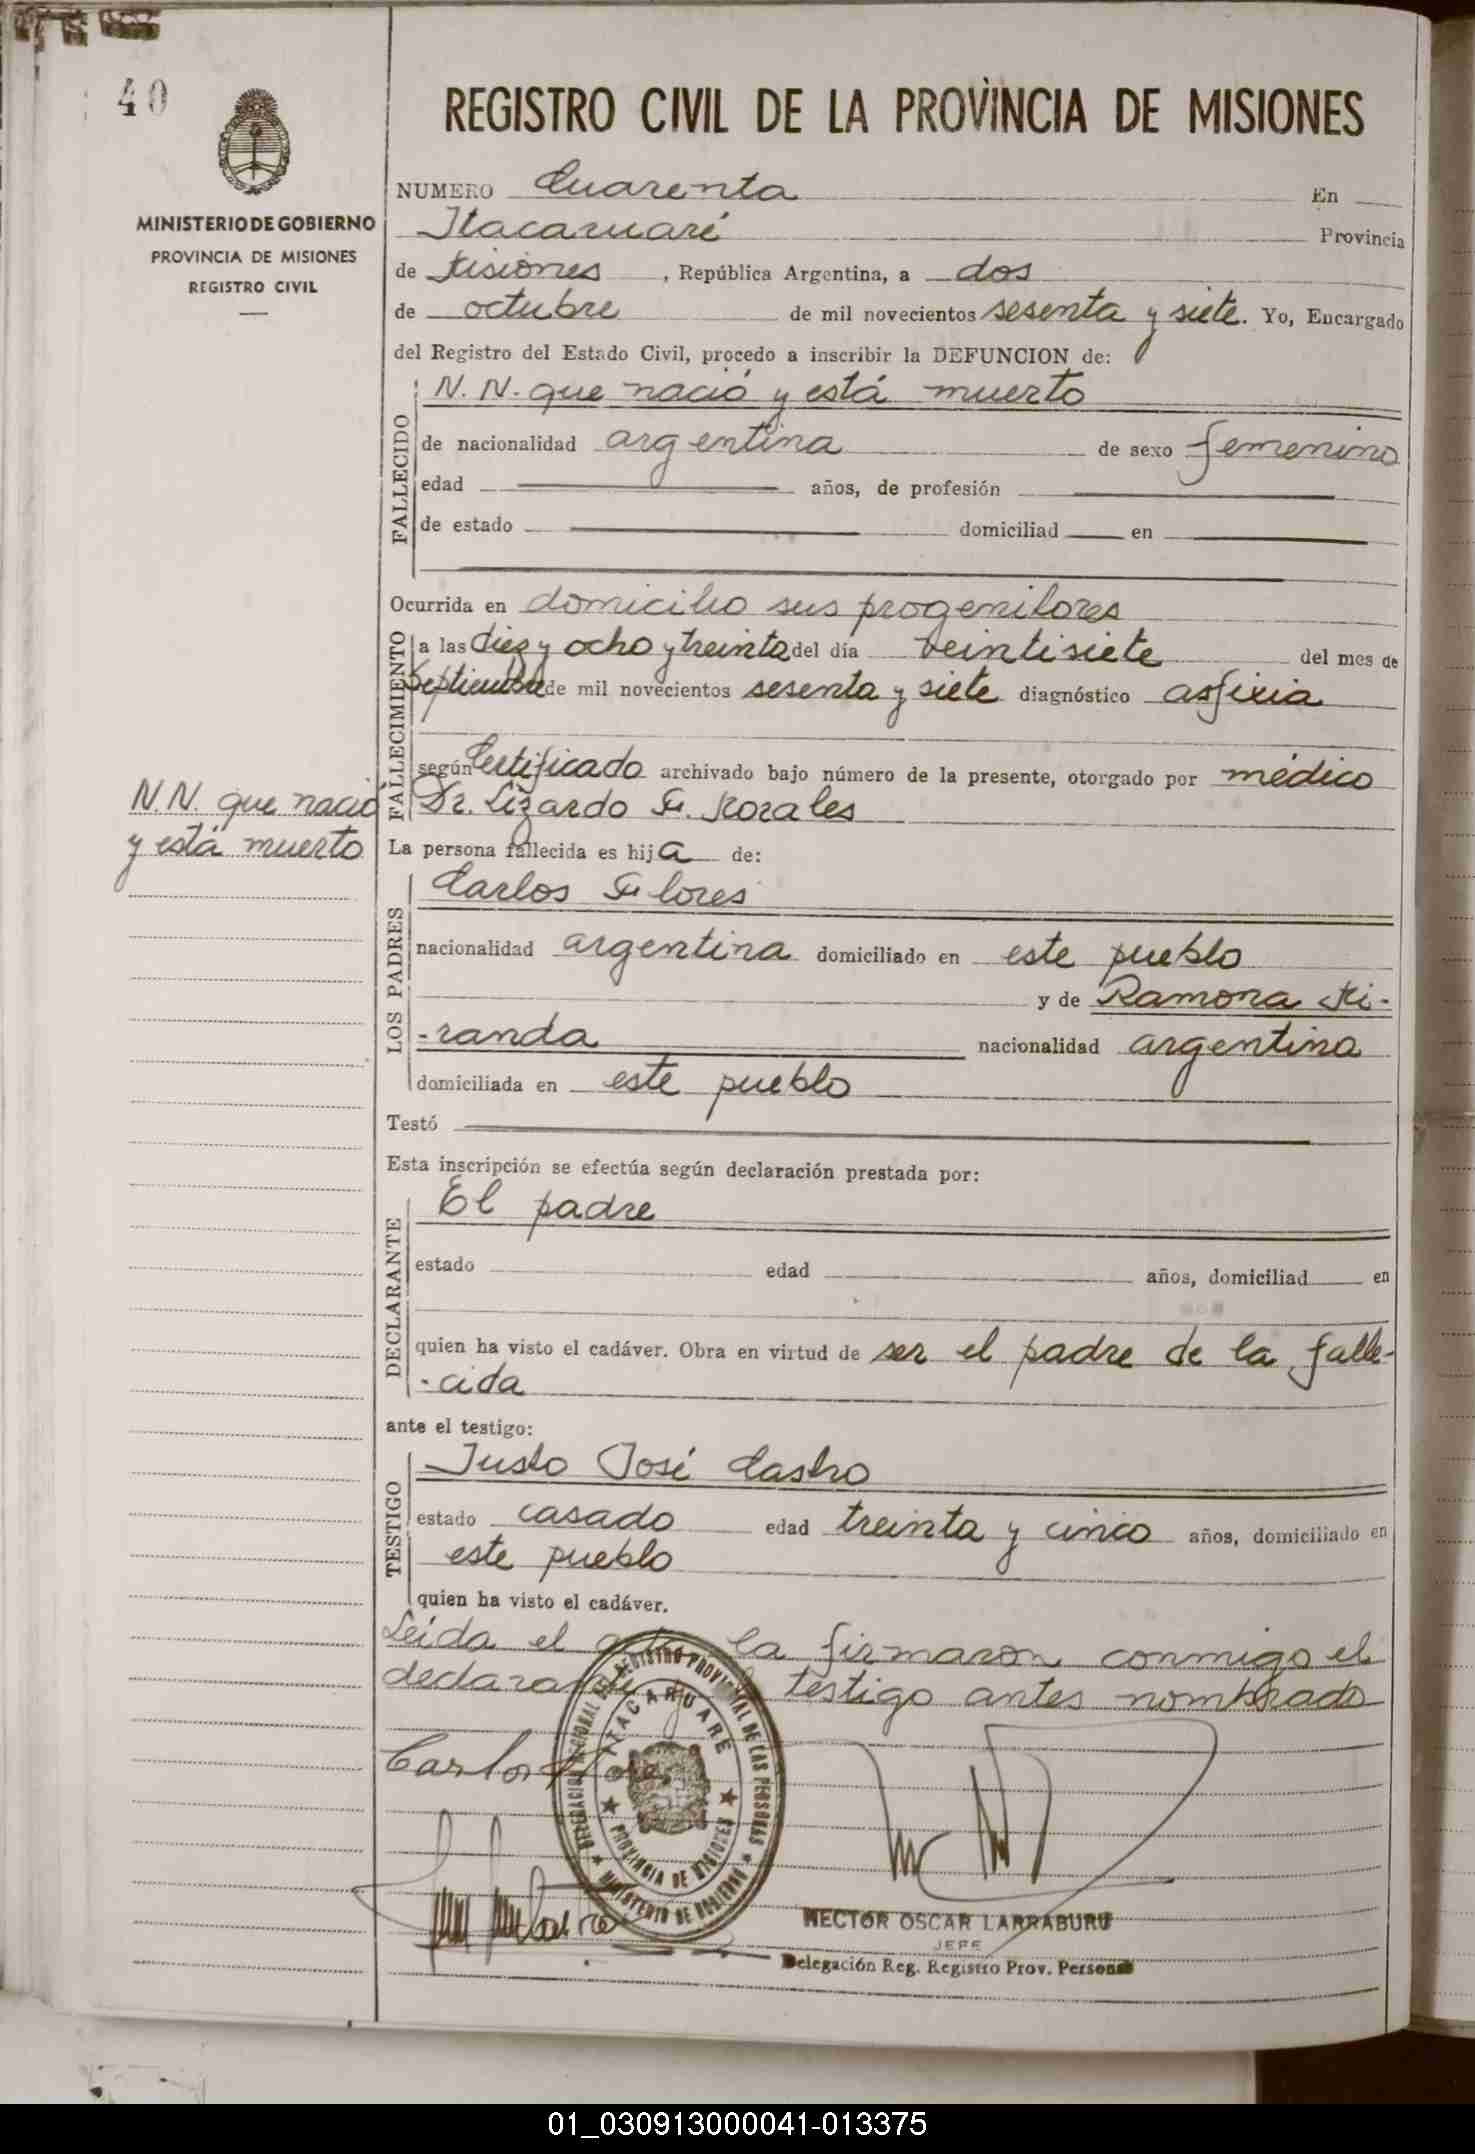 40
REGISTRO CIVIL DE LA PROVINCIA DE MISIONES
MINISTERIO DE GOBIERNO
PROVINCIA DE MISIONES
REGISTRO CIVIL
NUMERO Cuarenta En
Itacaruaré Provincia
de Misiones, República Argentina, a dos
de octubre de mil novecientos sesenta y siete. Yo, Encargado
del Registro del Estado Civil, procedo a inscribir la DEFUNCION de:
FALLECIDO
N.N. que nació y está muerto
de nacionalidad argentina de sexo femenino
edad años, de profesión
de estado domiciliad en
FALLECIMIENTO
Ocurrida en domicilio sus progenitores
a las diez y ocho y treinta del día veintisiete del mes de
Septiembre de mil novecientos sesenta y siete diagnóstico asfixia
según Certificado archivado bajo número de la presente, otorgado por médico
Dr. Lizardo F. Morales
N.N. que nació
y está muerto
La persona fallecida es hija de:
LOS PADRES
Carlos Flores
nacionalidad argentina domiciliado en este pueblo
y de Ramona Mi-
-randa nacionalidad argentina
domiciliada en este pueblo
Testó
Esta inscripción se efectúa según declaración prestada por:
DECLARANTE
El padre
estado edad años, domiciliad en
quien ha visto el cadáver. Obra en virtud de ser el padre de la falle-
-cida
ante el testigo:
TESTIGO
Justo José Castro
estado casado edad treinta y cinco años, domiciliado en
este pueblo
quien ha visto el cadáver.
Leída el la firmaron conmigo el
testigo antes nombrado
Carlos
DELEGACION REGIONAL DEL REGISTRO PROVINCIAL DE LAS PERSONAS
ITACARUARE
PROVINCIA DE MISIONES
MINISTERIO DE GOBIERNO
HECTOR OSCAR LARRABURU
JEFE
Delegación Reg. Registro Prov. Personas
01_030913000041-013375